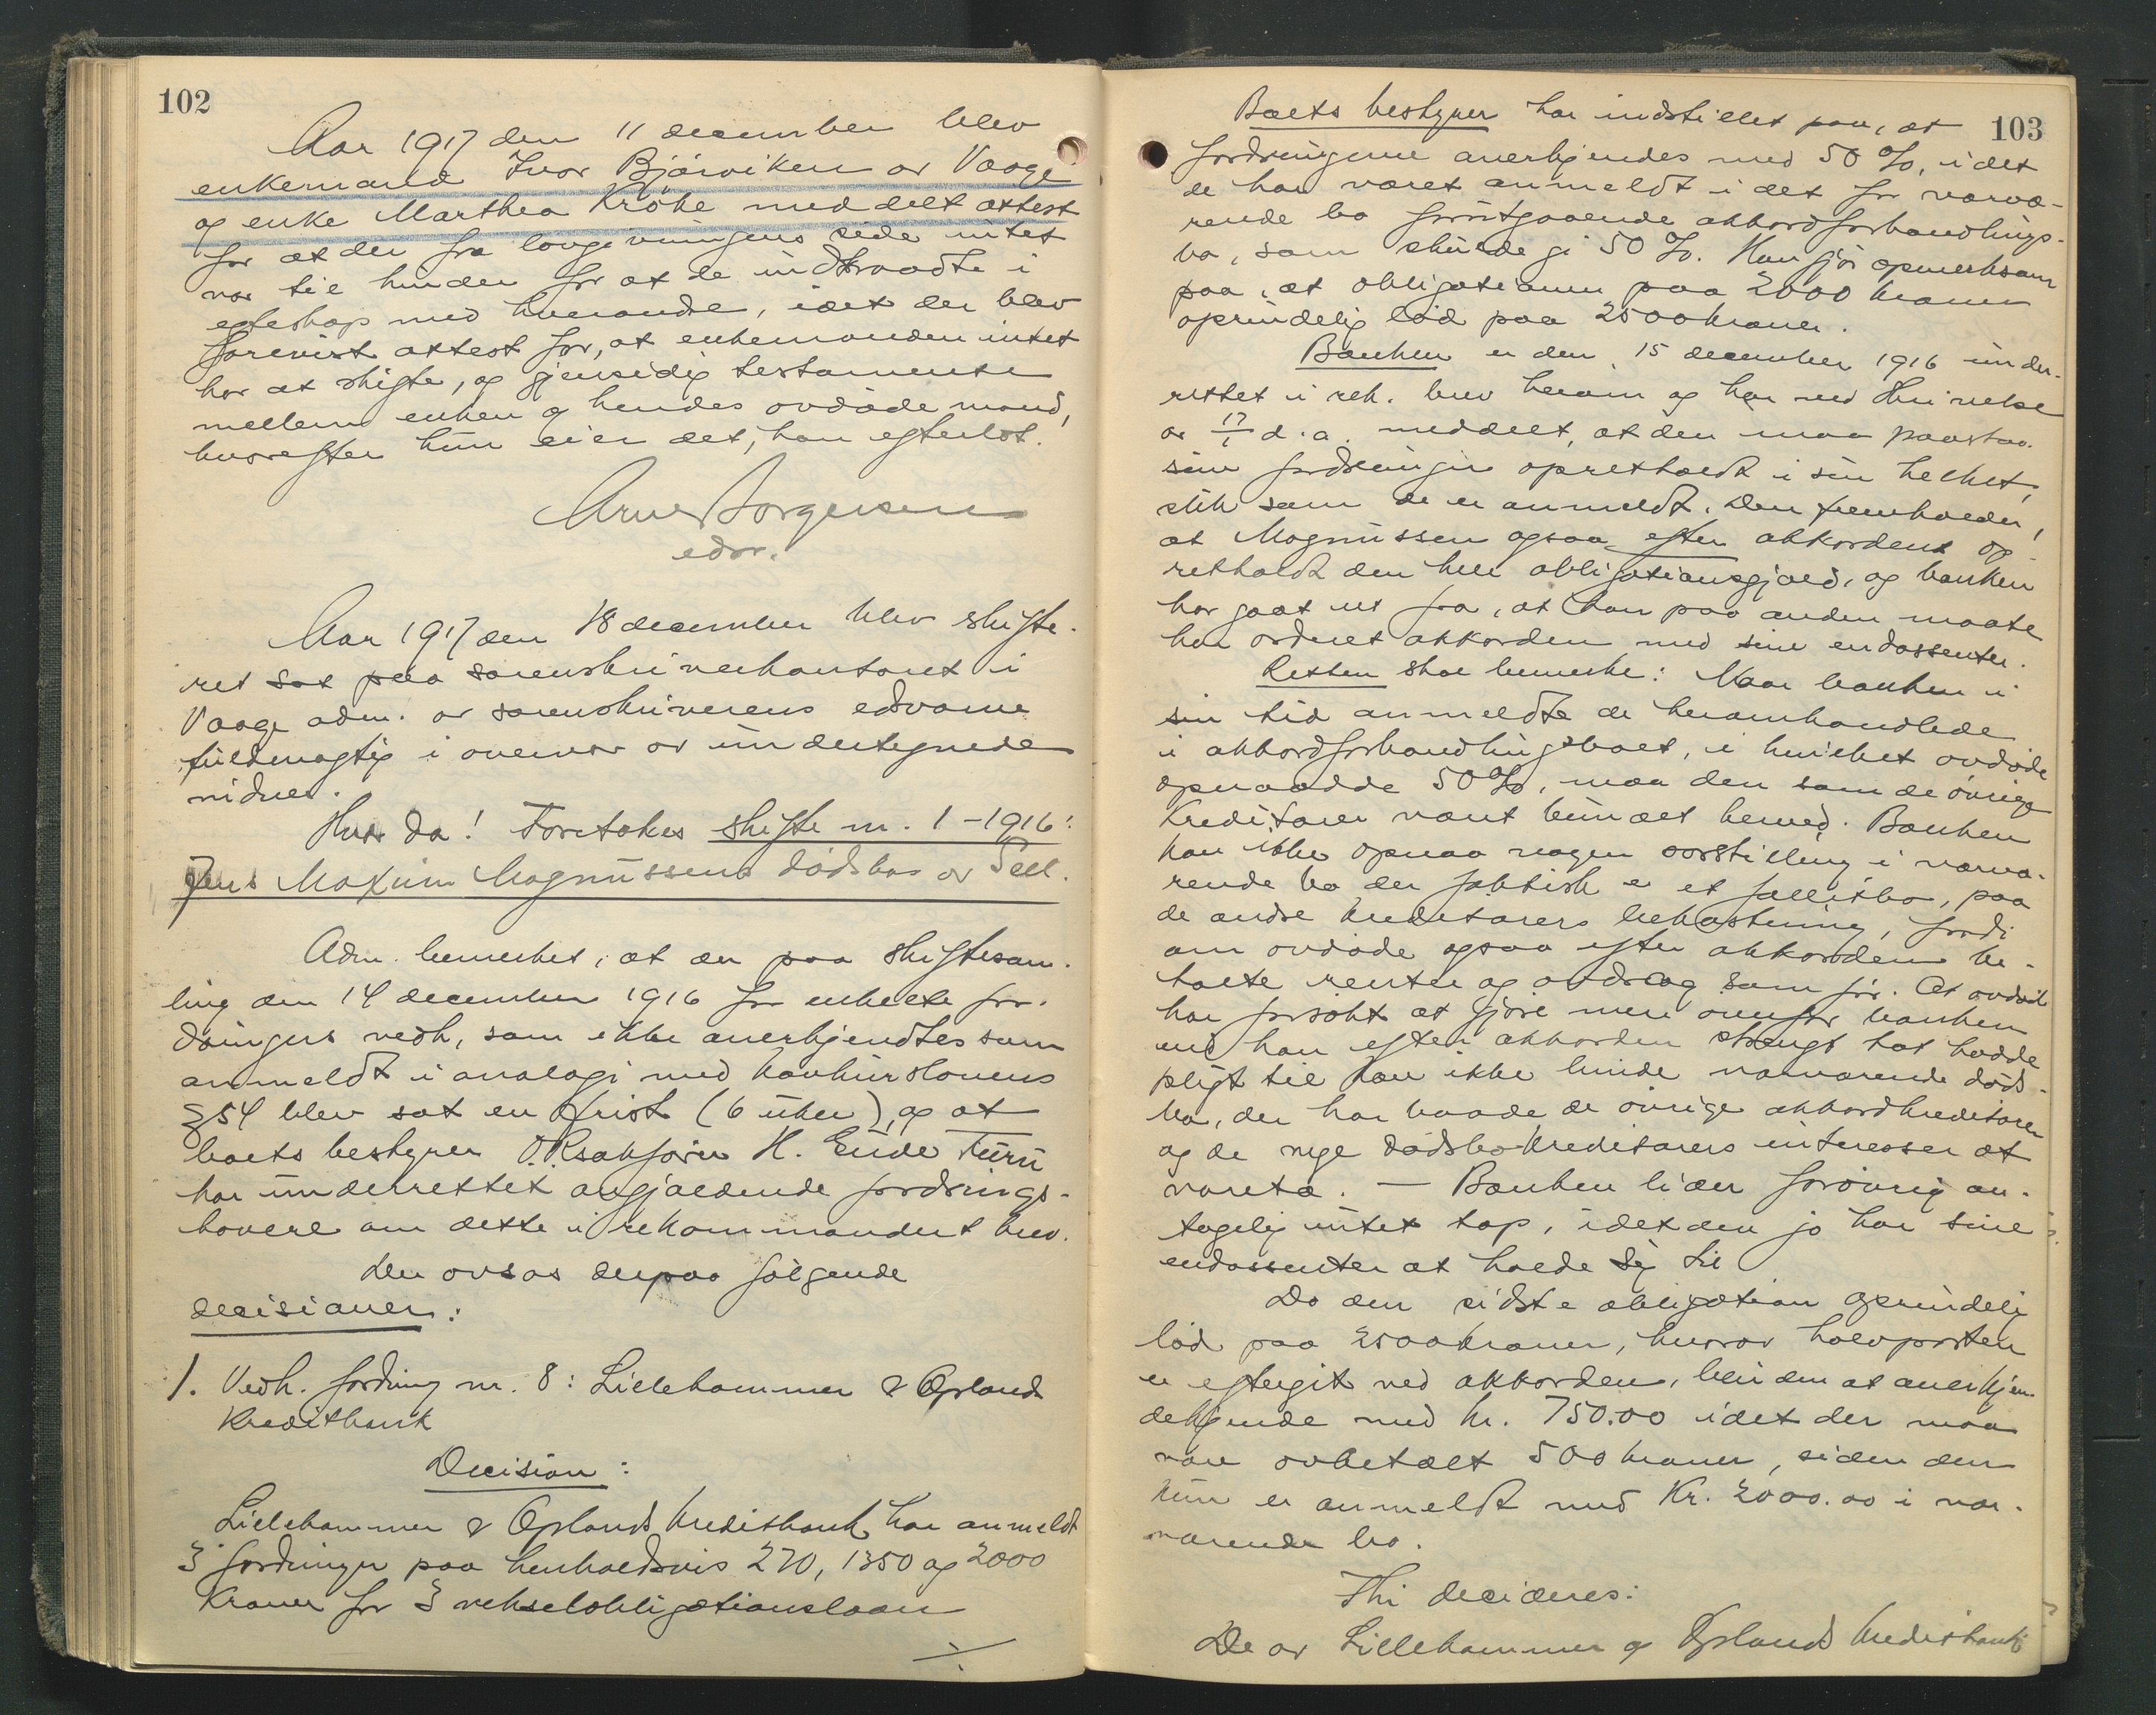 102
Aar 1917 den 11 december blev
enkemand Ivar Bjørviken av Vaage
og enke Marthea Krøke meddelt attest
for at der fra lovgivningens side intet
var til hinder for at de indtraadte i
egteskap med hverandre, idet der blev
forevist attest for, at enkemanden intet
har at skifte, og gjensidig testamente
mellem enken og hendes avdøde mand,
hvorefter hun eier det, han efterlot.
Arne Borgersen
edsv.
Aar 1917 den 18 december blev skifte-
ret sat paa sorenskriverkontoret i
Vaage adm. av sorenskriverens edsvorne
fuldmægtig i overvær av undertegnede
vidner.
Hvor da! Foretokes skifte nr. 1-1916:
Jens Maxim Magnussens dødsbo av Sell.
Adm. bemerket, at der paa skiftesam-
ling den 14 december 1916 for enkelte for-
dringers vedk, som ikke anerkjendtes som
anmeldt i analogi med konkurslovens
§54 blev sat en frist (6 uker), og at
boets bestyrer O.R.sakfører H. Ende Furu
har underrettet angjældende fordrings-
havere om dette i rekommandert brev.
Der avsas derpaa følgende
decisioner:
1. Vedk. fordring nr. 8: Lillehammer & Oplands
Kreditbank
Decision:
Lillehammer & Oplands kreditbank har anmeldt
3 fordringer paa henholdsvis 270, 1350 og 2000
kroner for 3 vekselobligationslaan
./.
103
Boets bestyrer har indstillet paa, at
fordringerne anerkjendes med 50 %, idet
de har været anmeldt i det for nærvæ-
rende bo forutgaaende akkordforhandlings-
bo, som skulde gi 50 %. Han gjør opmerksom
paa, at obligationen paa 2000 kroner
oprindelig lød paa 2500 kroner.
Banken er den 15 december 1916 under-
rettet i rek. brev herom og har ved skrivelse
av 17/1 d.a. meddelt, at den maa paastaa
sine fordringer opretholdt i sin helhet,
slik som de er anmeldt. Den fremholder,
at Magnussen ogsaa efter akkorden op-
retholdt den hele obligationsgjæld, og banken
har gaat ut fra, at han paa anden maate
har ordnet akkorden med sine endossenter.
Retten skal bemerke: Naar banken i
sin tid anmeldte de heromhandlede
i akkordforhandlingsboet, i hvilket avdøde
opnaadde 50 %, maa den som de øvrige
kreditorer være bundet herved. Banken
kan ikke opnaa nogen særstilling i nærvæ-
rende bo der faktisk er et fallitbo, paa
de andre kreditorers bekostning, fordi
om avdøde ogsaa efter akkorden be-
talte renter og avdrag som før. At avdøde
har forsøkt at gjøre mere overfor banken
end han efter akkorden strengt tat hadde
pligt til kan ikke binde nærværende døds-
bo, der har baade de øvrige akkordkreditorer
og de nye dødsbokreditorers interesser at
vareta. — Banken lider forøvrig an-
tagelig intet tap, idet den jo har sine
endossenter at holde sig til
Da den sidste obligation oprindelig
lød paa 2500 kroner, hvorav halvparten
er eftergit ved akkorden, blir den at anerkjen-
dekjende med kr. 750.00 idet der maa
være avbetalt 500 kroner, siden den
kun er anmeldt med Kr. 2000.00 i nær-
værende bo.
Thi decideres:
De av Lillehammer og Oplands kreditbank